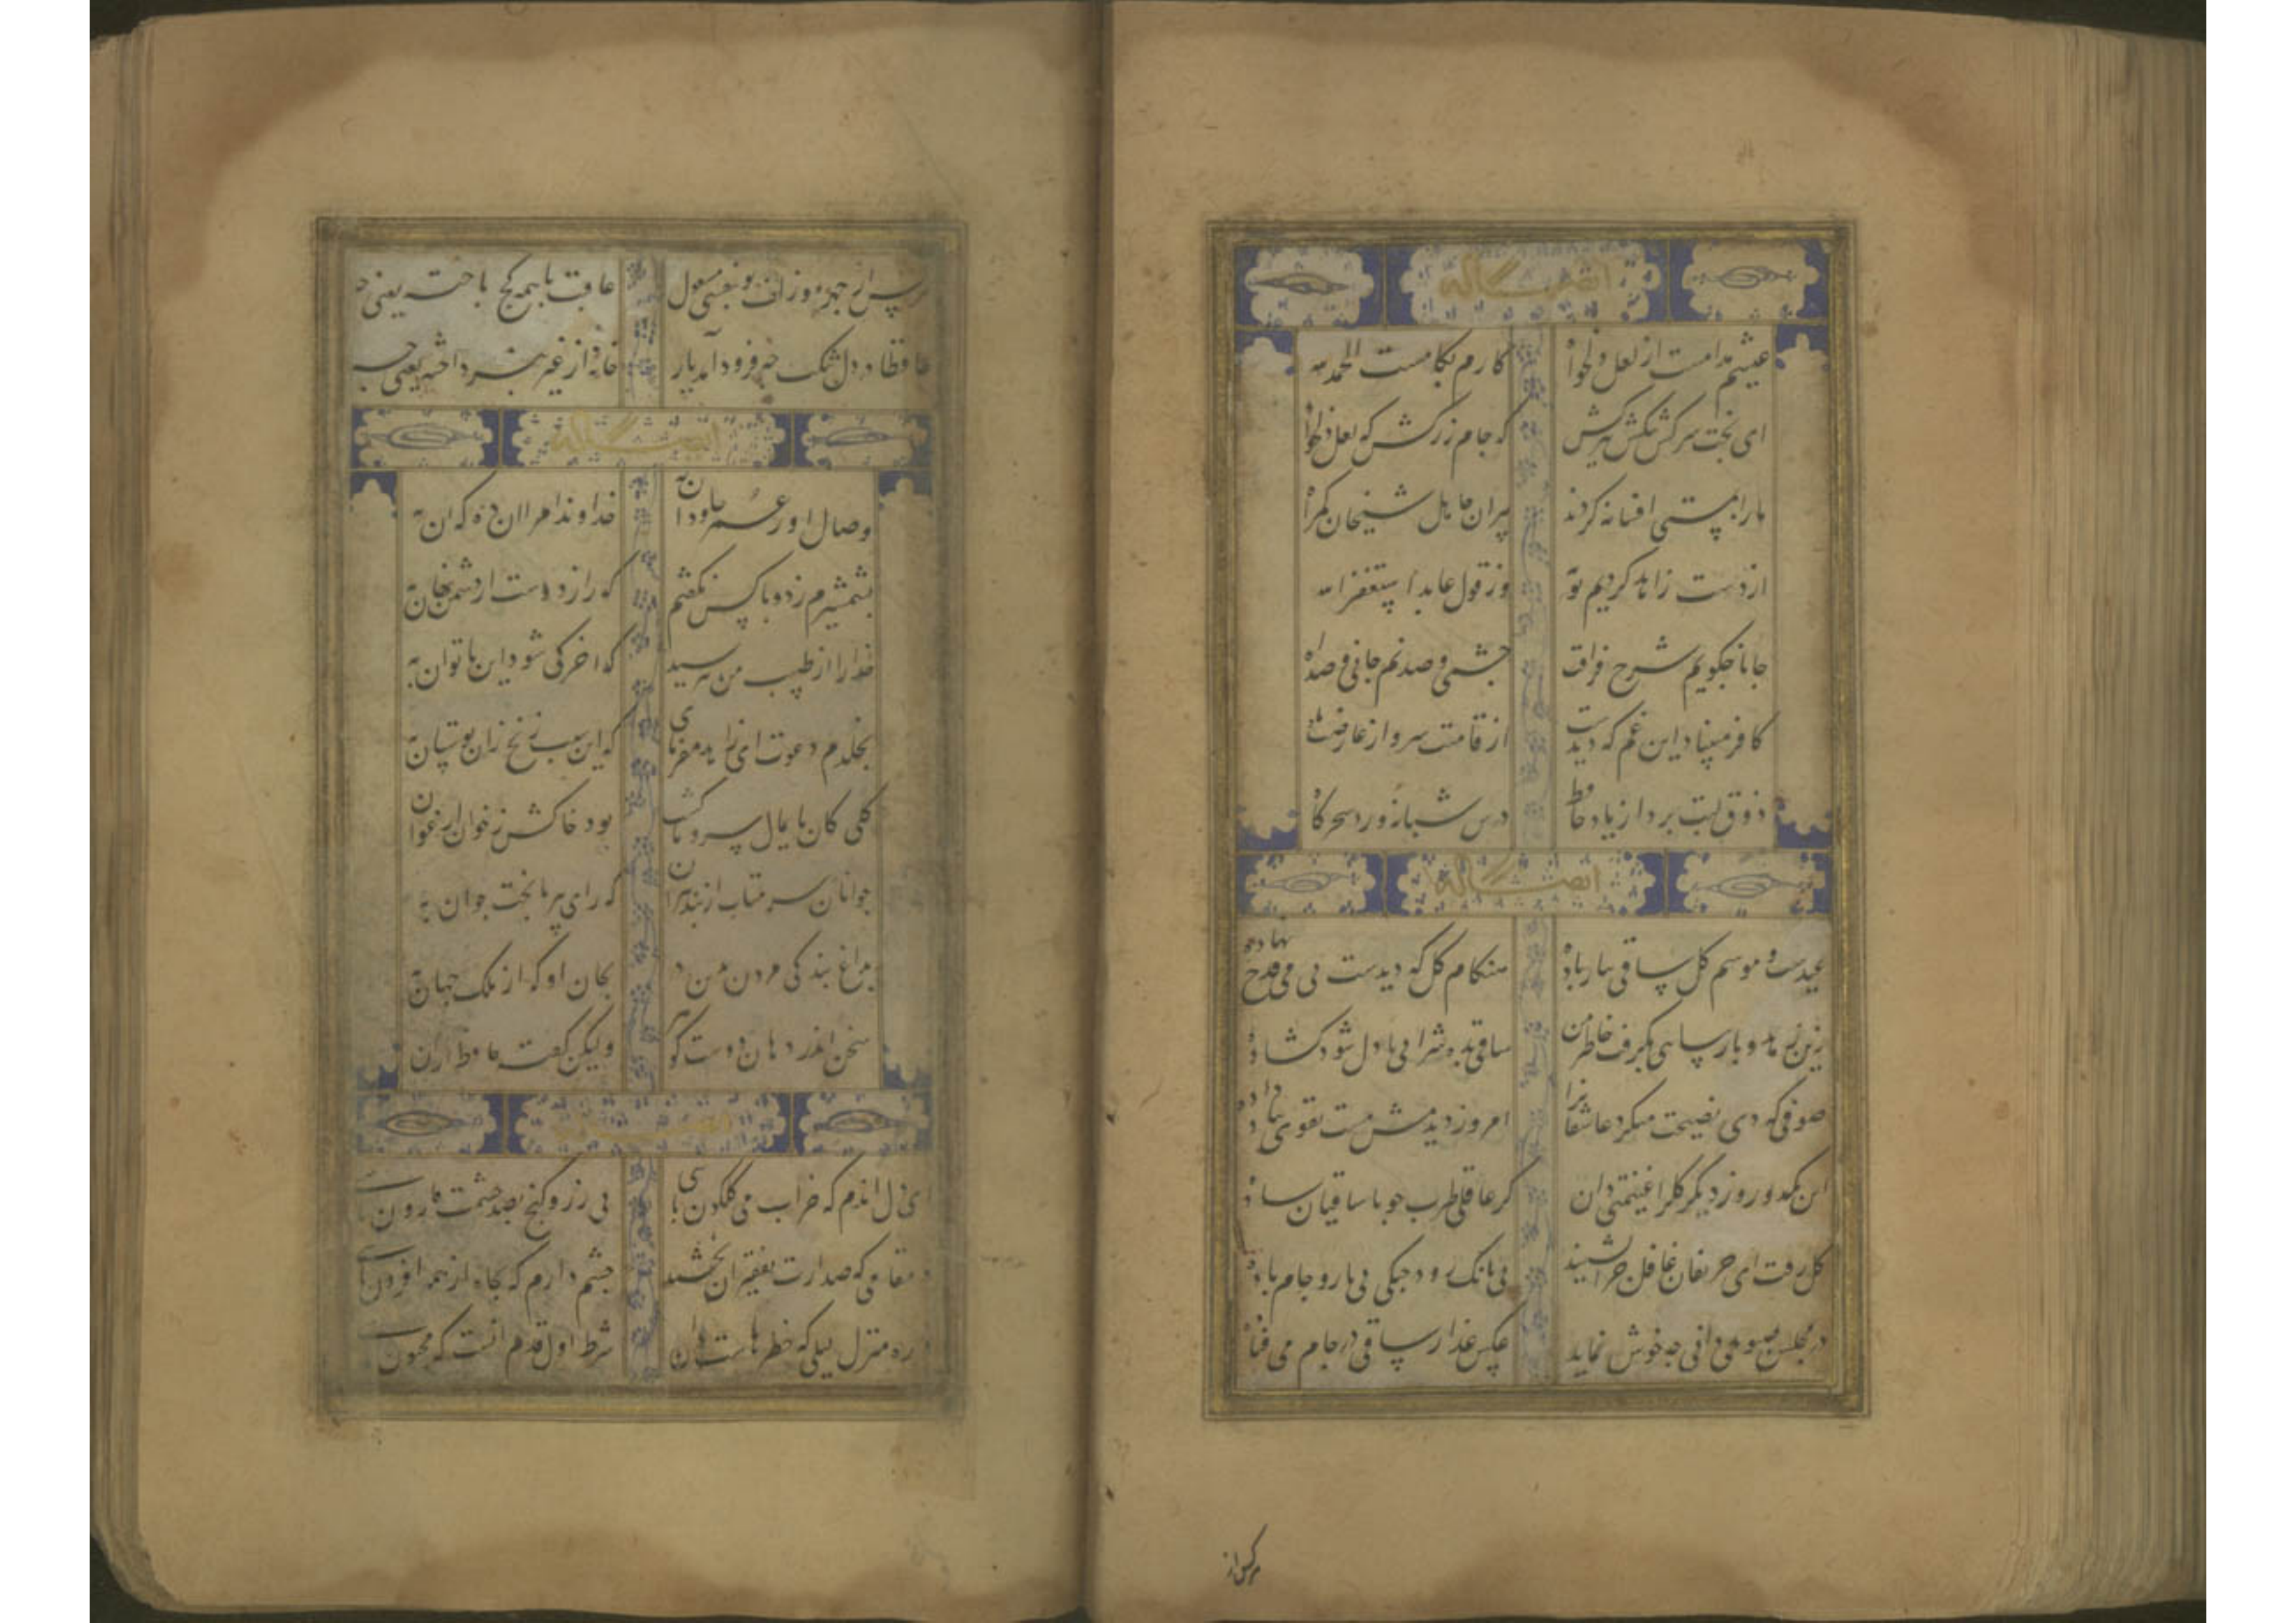 ایضا له
عیشم مدامست از لعل دلخواه کارم بکامست الحمد لله
ای بخت سرکش تنکش ببر کش که جام زر کش که لعل دلخواه
مارا بمستی افسانه کردند پیران جاهل شیخان گمراه
از دست زاهد کردیم توبه وز قول عابد استغفر الله
جانا چکویم شرح فراقت چشمی و صد نم جانی و صد آه
کافر مبیناد این غم که دیدست از قامتت سرو از عارضت ماه
ذوق لبت برد از یاد حافظ درس شبانه ورد سحرگاه
ایضا له
عیدست و موسم گل ساقی بیار باده هنکام گل که دیدست بی می قدح نهاده
زین زهد و پارسایی بگرفت خاطر من ساقی بده شرابی تا دل شود گشاده
صوفی که دی نصیحت میکرد عاشقانرا امروز دیدمش مست تقوی بباد داده
این یکدو روز دیگر گلرا غنیمتی دان گر عاقلی طرب جو با ساقیان ساده
گل رفت ای حریفان غافل چرا نشینید بی بانک رود و چنگی بی یار و جام باده
در مجلس صبوحی دانی چه خوش نماید عکس عذار ساقی در جام می فتاده
هرکس از
عاقبت با همه کج باخته یعنی چه
حافظا در دل تنگت چو فرود آمد یار خانه از غیر نپرداخته یعنی چه
ایضا له
وصال او ز عمر جاودان به خداوندا مرا آن ده که آن به
بشمشیرم زد و با کس نگفتم که راز دوست از دشمن نهان به
خدا را از طبیب من بپرسید که آخر کی شود این ناتوان به
بخلدم دعوت ای زاهد مفرمای که این سیب زنخ زان بوستان به
گلی کان پایمال سرو ماگشت بود خاکش ز خون ارغوان به
جوانان سر متاب از پند پیران که رای پیر با بخت جوان به
بداغ بندگی مردن درین در بجان او که از ملک جهان به
سخن اندر دهان دوست گوهر ولیکن گفته حافظ از آن به
ایضا له
ای دل آندم که خراب می گلگون باشی بی زر و گنج بصد حشمت قارون باشی
در مقامی که صدارت بفقیران بخشند چشم دارم که بجاه از همه افزون باشی
در ره منزل لیلی که خطرهاست در آن شرط اول قدم آنست که مجنون باشی